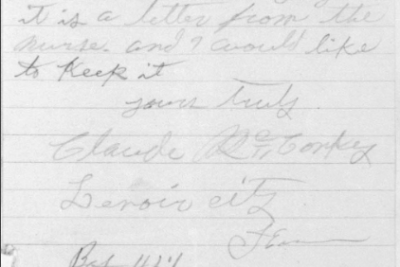 it is a letter from the
nurse. and I would like
to Keep it
yours truly.
Claude McConkey
Lenoir city
Tenn
Box 424